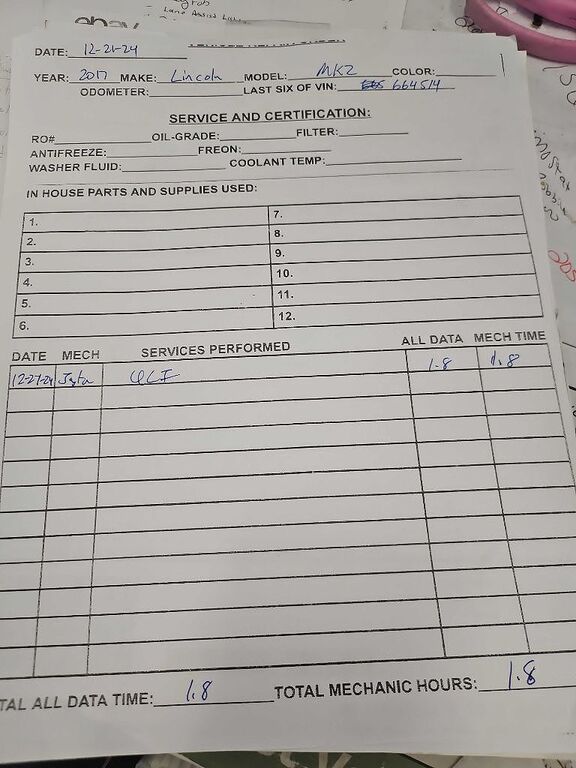 ebay
DATE: 12-21-24
YEAR: 2017 MAKE: Lincoln MODEL: MKZ COLOR:
ODOMETER: LAST SIX OF VIN: 664514
SERVICE AND CERTIFICATION:
RO# OIL-GRADE: FILTER:
ANTIFREEZE: FREON:
WASHER FLUID: COOLANT TEMP:
IN HOUSE PARTS AND SUPPLIES USED:
1. 7.
2. 8.
3. 9.
4. 10.
5. 11.
6. 12.
DATE MECH SERVICES PERFORMED ALL DATA MECH TIME
12-27-24 1.8 1.8
TAL ALL DATA TIME: 1.8 TOTAL MECHANIC HOURS: 1.8